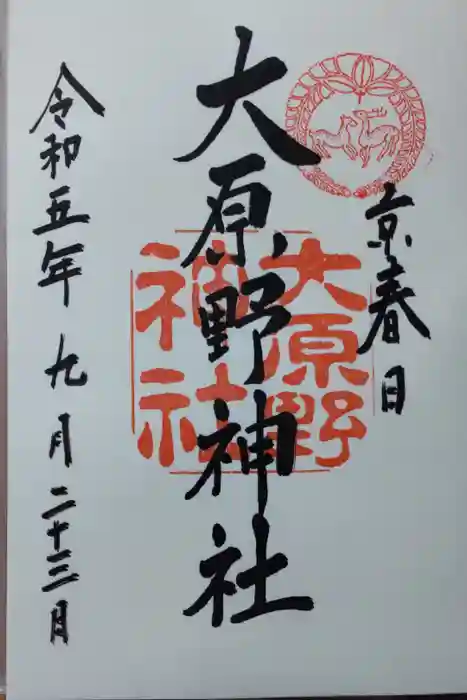 京春日
大原野神社
大原野
神社
令和五年 九月 二十三日